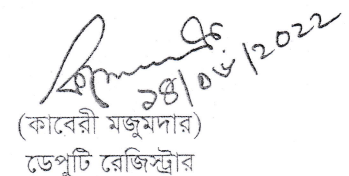 ২৪/০৮/2022
(কাবেরী মজুমদার)
ডেপুটি রেজিস্ট্রার